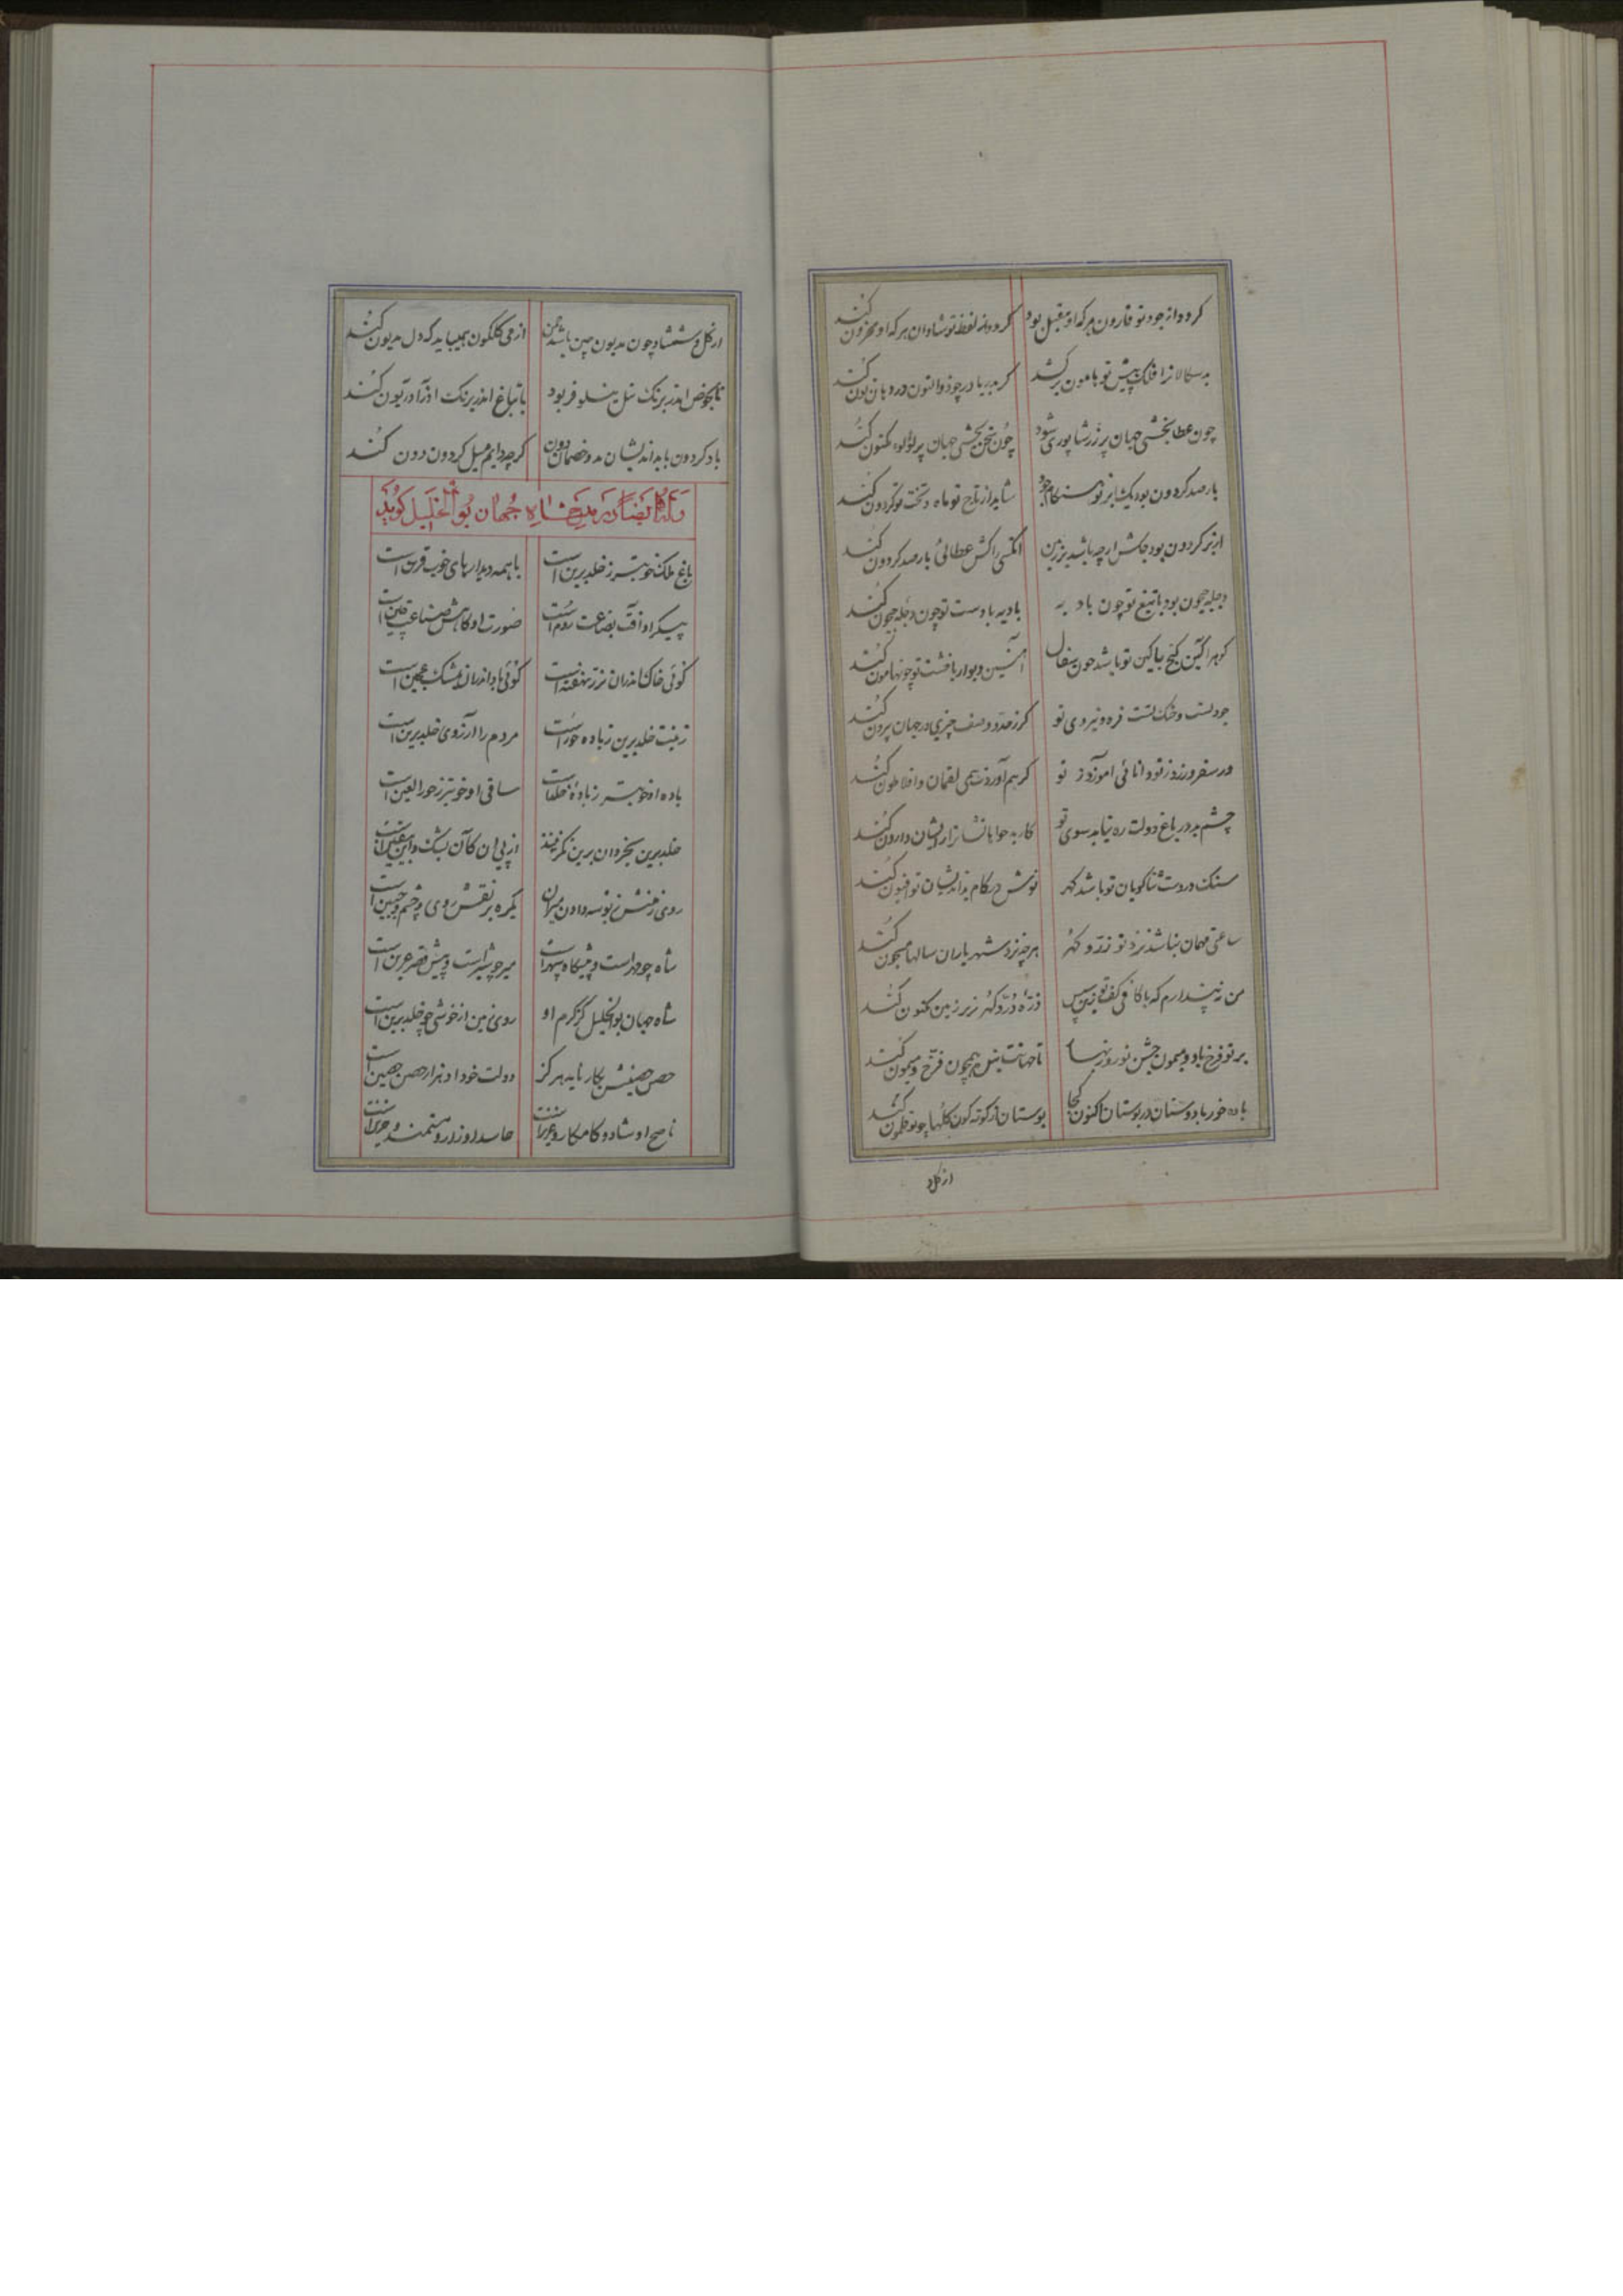 کردد از جود تو قارون هر که او مقبل بود کردد از لفظ تو شادان هر که او محزون کند
بدسکالانرا فلک پیش تو هامون بر کشد کر بدریا در چو ذوالنون در دهان نون کند
چون عطا بخشی جهان پر زر شاپوری شود چون سخن بخشی جهان پر لؤلوء مکنون کند
بار صد کردون بود یکشاعر تو هنکام جود شاید ار تاج تو ماه و تخت تو کردون کند
ابر تر کردون بود جاش ارچه باشد بر زمین انکسی را کش عطائی بار صد کردون کند
دجله جیحون بود با تیغ تو چون بادیه بادیه با دست تو چون دجله جیحون کند
کوهر آکین کنج با کین تو باشد چون سفال آهنین دیوار با خشت تو چون هامون کند
جود تست و خنک تست فره و نیروی تو کر ز حد و وصف چیزی در جهان بیرون کند
ور سفر ورزد ز تو دانائی آموزد ز تو کر بهم آورد رسمی لقمان و افلاطون کند
چشم بد در باغ دولت ره نیابد سوی تو کار بدخواهانش از ایشان وارون کند
سنک در دست ثنا کویان تو باشد کهر نوش در کام بداندیشان تو افیون کند
ساعتی مهمان نباشد نزد تو زر و کهر هر چه نزد شهریاران سالها مسجون کند
من نپندارم که با کافی کف تو زین سپس ذره در و کهر زیر زمین مکنون کند
بر تو فرخ باد و میمون جشن نوروز و بهار تا جهانت بنده همچون فرخ و میمون کند
باده خور با دوستان در بوستان اکنون کجا بوستان از کونه کون کلها چو بوقلمون کند
از کل و
از کل و شمشاد چون مدیون چین باشد چمن از می کلکون همیباید که دل مدیون کند
تا بحوض اندر برنک نیل نیلوفر بود تا بباغ اندر برنک آذر آذریون کند
باد کردون با بداندیشان مد و خصمان دون کرچه دایم میل کردون دون کند
و له ایضا در مدح شاه جهان بوالخلیل کوید
باغ ملک خوبتر ز خلد برین است با همه دیدارهای خوب قرین است
پیکر او آفت بضاعت روم است صورت او کاهش صناعت چین است
کوئی خاک اندران بزر نهفته است کوئی باد اندران بمشک عجین است
زینت خلد برین زیاده حور است مردم را آرزوی خلد برین است
باده او خوبتر ز باده خلد است ساقی او خوبتر ز حورالعین است
خلد برین بخردان برین نکزینند از پی ان کآن بشک و این بیقین است
روی زمینش ز بوسه دادن میران یکره بر نقش روی و چشم و جبین است
شاه چو مهر است و پیشکاه سپهر است میر چو شیر است و پیش قصر عرین است
شاه جهان بوالخلیل کز کرم او روی زمین از خوشی چو خلد برین است
حصن حصینش بکار ناید هرکز دولت خود او هزار حصن حصین است
ناصح او شاد و کامکار و عزیز است حاسد او زار و مستمند و حزین است